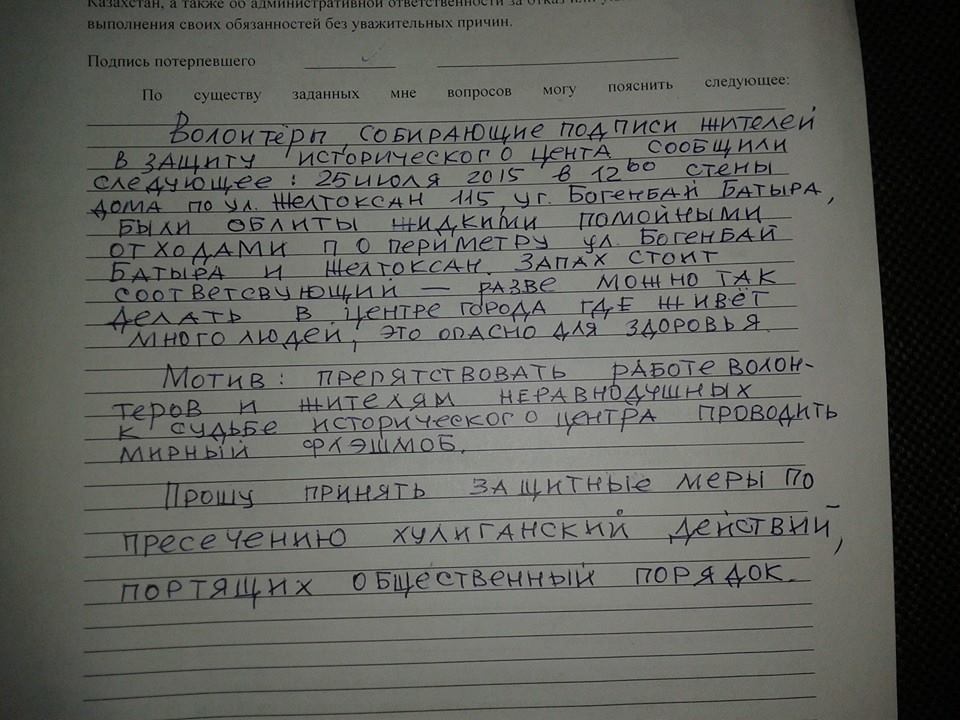 Казахстан, а также об административной ответственности за отказ или
выполнения своих обязанностей без уважительных причин.
Подпись потерпевшего
По существу заданных мне вопросов могу пояснить следующее:
Волонтёры, собирающие подписи жителей
в защиту исторического цента сообщили
следующее: 25 июля 2015 в 12⁰⁰ стены
дома по ул. Желтоксан 115, уг. Богенбай Батыра,
были облиты жидкими помойными
отходами по периметру ул. Богенбай
Батыра и Желтоксан. Запах стоит
соответсвующий — разве можно так
делать в центре города где живёт
много людей, это опасно для здоровья.
Мотив: препятствовать работе волон-
теров и жителям неравнодушных
к судьбе исторического центра проводить
мирный флэшмоб.
Прошу принять защитные меры по
пресечению хулиганский действий,
портящих общественный порядок.